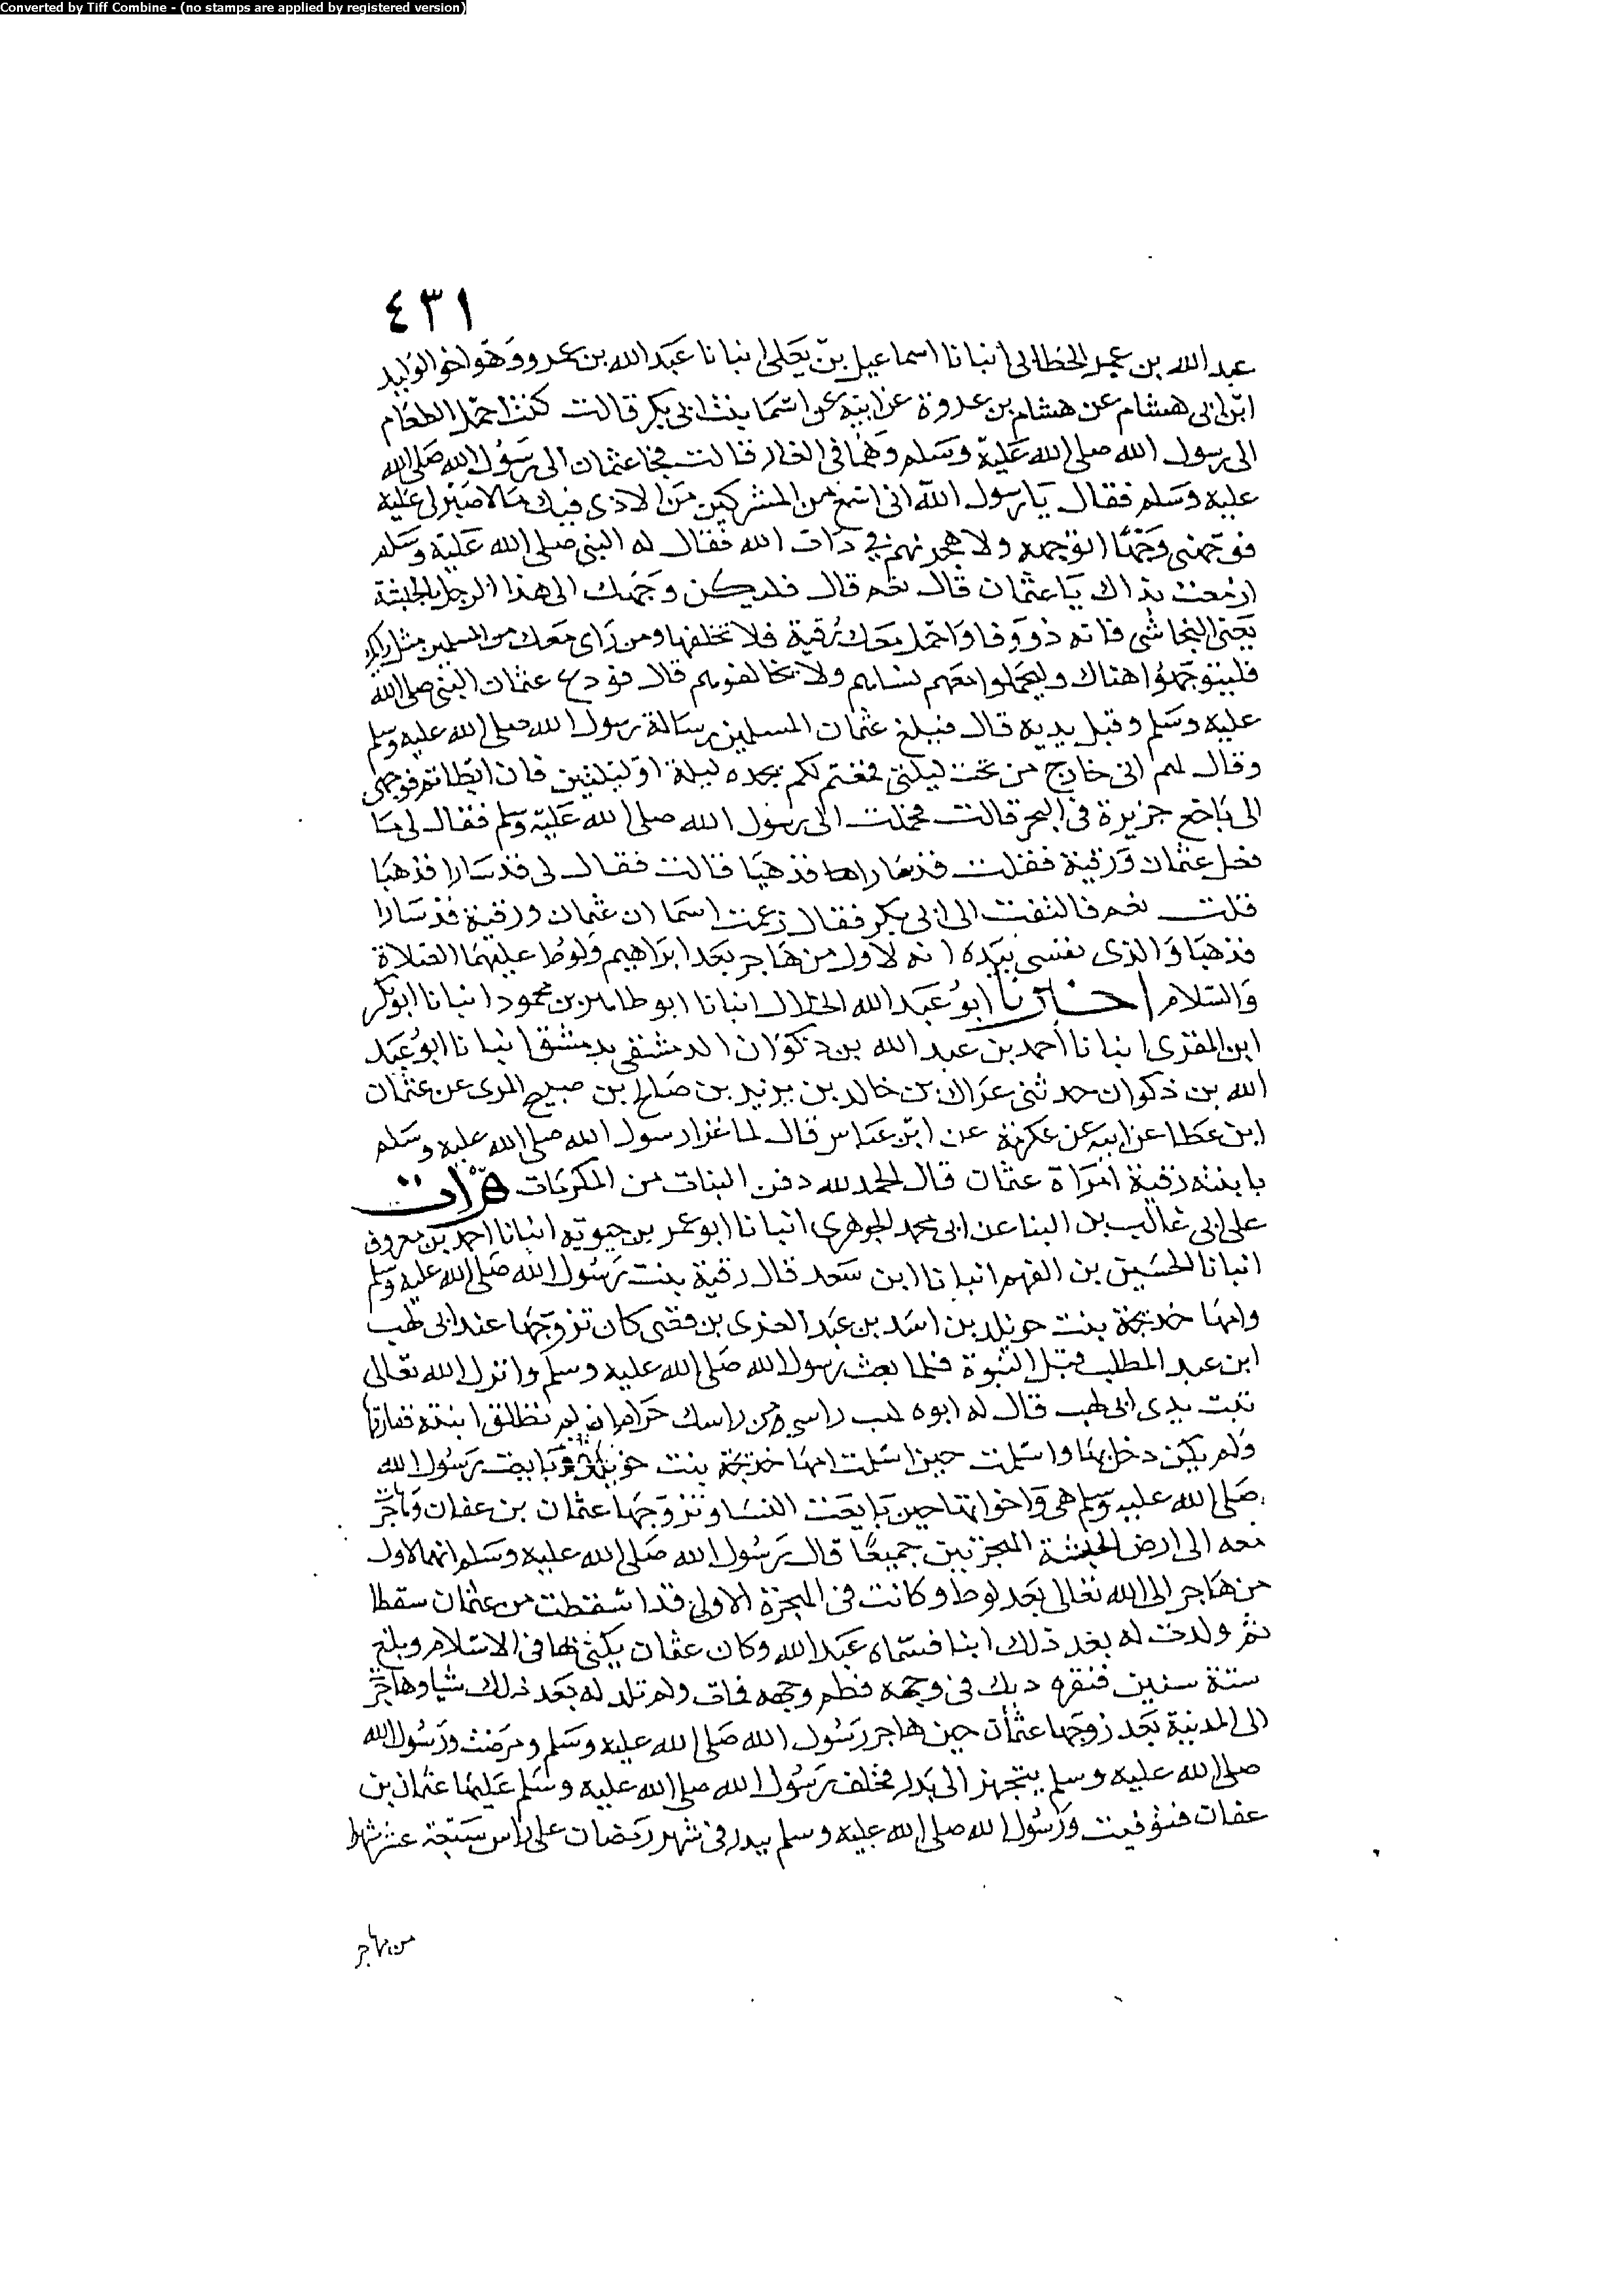 Converted by Tiff Combine - (no stamps are applied by registered version)
٤٣١
عبد الله بن عمر الخطابى انبانا اسماعيل بن يعلى انبانا عبد الله بن عمرو وهو اخو الوليد
ابن ابى هشام عن هشام بن عروة عن ابيه عن اسما بنت ابى بكر قالت كنت احمل الطعام
الى رسول الله صلى الله عليه وسلم وهما فى الغار قالت فجا عثمان الى رسول الله صلى الله
عليه وسلم فقال يا رسول الله انى اسمع من المشركين من الاذى فيك ما لا صبر لى عليه
فوجهنى وجها اتوجهه ولاهجرنهم في ذات الله فقال له النبى صلى الله عليه وسلم
ازمعت بذاك يا عثمان قال نعم قال فليكن وجهك الى هذا الرجل بالحبشة
يعنى النجاشى فانه ذو وفا واحمل معك رقية فلا تخلفها ومن راى معك من المسلمين مثل رايك
فليتوجهوا هناك وليحملوا معهم نساهم ولا يخالفوهم قال فودع عثمان النبى صلى الله
عليه وسلم وقبل يديه قال فبلغ عثمان المسلمين رسالة رسول الله صلى الله عليه وسلم
وقال لهم انى خارج من تحت ليلتى فمقيم لكم بجده ليلة او ليلتين فان ابطاتم فوجهى
الى باضع جزيرة فى البحر قالت فحملت الى رسول الله صلى الله عليه وسلم فقال لى ما
فعل عثمان ورقية فقلت قد سارا فذهبا قالت فقال لى قد سارا فذهبا
قلت نعم فالتفت الى ابى بكر فقال زعمت اسما ان عثمان ورقية قد سارا
فذهبا والذى نفسى بيده انه لاول من هاجر بعد ابراهيم ولوط عليهما الصلاة
والسلام اخبرنا ابو عبد الله الخلال انبانا ابو طاهر بن محمود انبانا ابو بكر
ابن المقرى انبانا احمد بن عبد الله بن ذكوان الدمشقى بدمشق انبانا ابو عبد
الله بن ذكوان حدثنى عراك بن خالد بن يزيد بن صالح بن صبيح المرى عن عثمان
ابن عطا عن ابيه عن عكرمة عن ابن عباس قال لما عزا رسول الله صلى الله عليه وسلم
بابنته رقية امراة عثمان قال الحمد لله دفن البنات من المكرمات قرات
على ابى غالب بن البنا عن ابى محمد الجوهرى انبانا ابو عمر بن حيويه انبانا احمد بن معروف
انبانا الحسين بن الفهم انبانا ابن سعد قال رقية بنت رسول الله صلى الله عليه وسلم
وامها خديجة بنت خويلد بن اسد بن عبد العزى بن قصى كان تزوجها عند ابى لهب
ابن عبد المطلب قبل النبوة فلما بعث رسول الله صلى الله عليه وسلم وانزل الله تعالى
تبت يدى ابى لهب قال له ابوه لهب راسى من راسك حرام ان لم تطلق ابنته ففارقها
ولم يكن دخل بها واسلمت حين اسلمت امها خديجة بنت خويلد وبايعت رسول الله
صلى الله عليه وسلم هى واخواتها حين بايعت النسا وتزوجها عثمان بن عفان وهاجرت
معه الى ارض الحبشة الهجرتين جميعا قال رسول الله صلى الله عليه وسلم انهما لاول
من هاجر الى الله تعالى بعد لوط وكانت فى الهجرة الاولى قد اسقطت من عثمان سقطا
ثم ولدت له بعد ذلك ابنا فسماه عبد الله وكان عثمان يكنى بها فى الاسلام وبلغ
ستة سنين فنقره ديك فى وجهه فطم وجهه فات ولم تلد له بعد ذلك شيا وهاجرت
الى المدينة بعد زوجها عثمان حين هاجر رسول الله صلى الله عليه وسلم ومرضت ورسول الله
صلى الله عليه وسلم يتجهز الى بدر فخلف رسول الله صلى الله عليه وسلم عليها عثمان بن
عفان فتوفيت ورسول الله صلى الله عليه وسلم ببدر فى شهر رمضان على راس سبعة عشر شهرا
من مهاجر